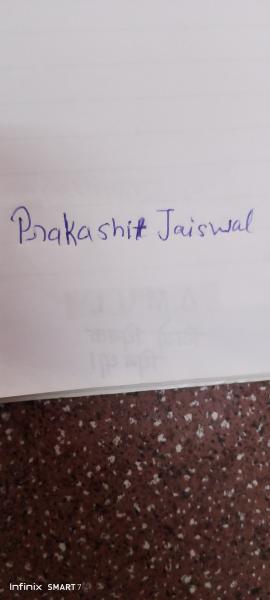 Prakashit Jaiswal
Infinix SMART 7